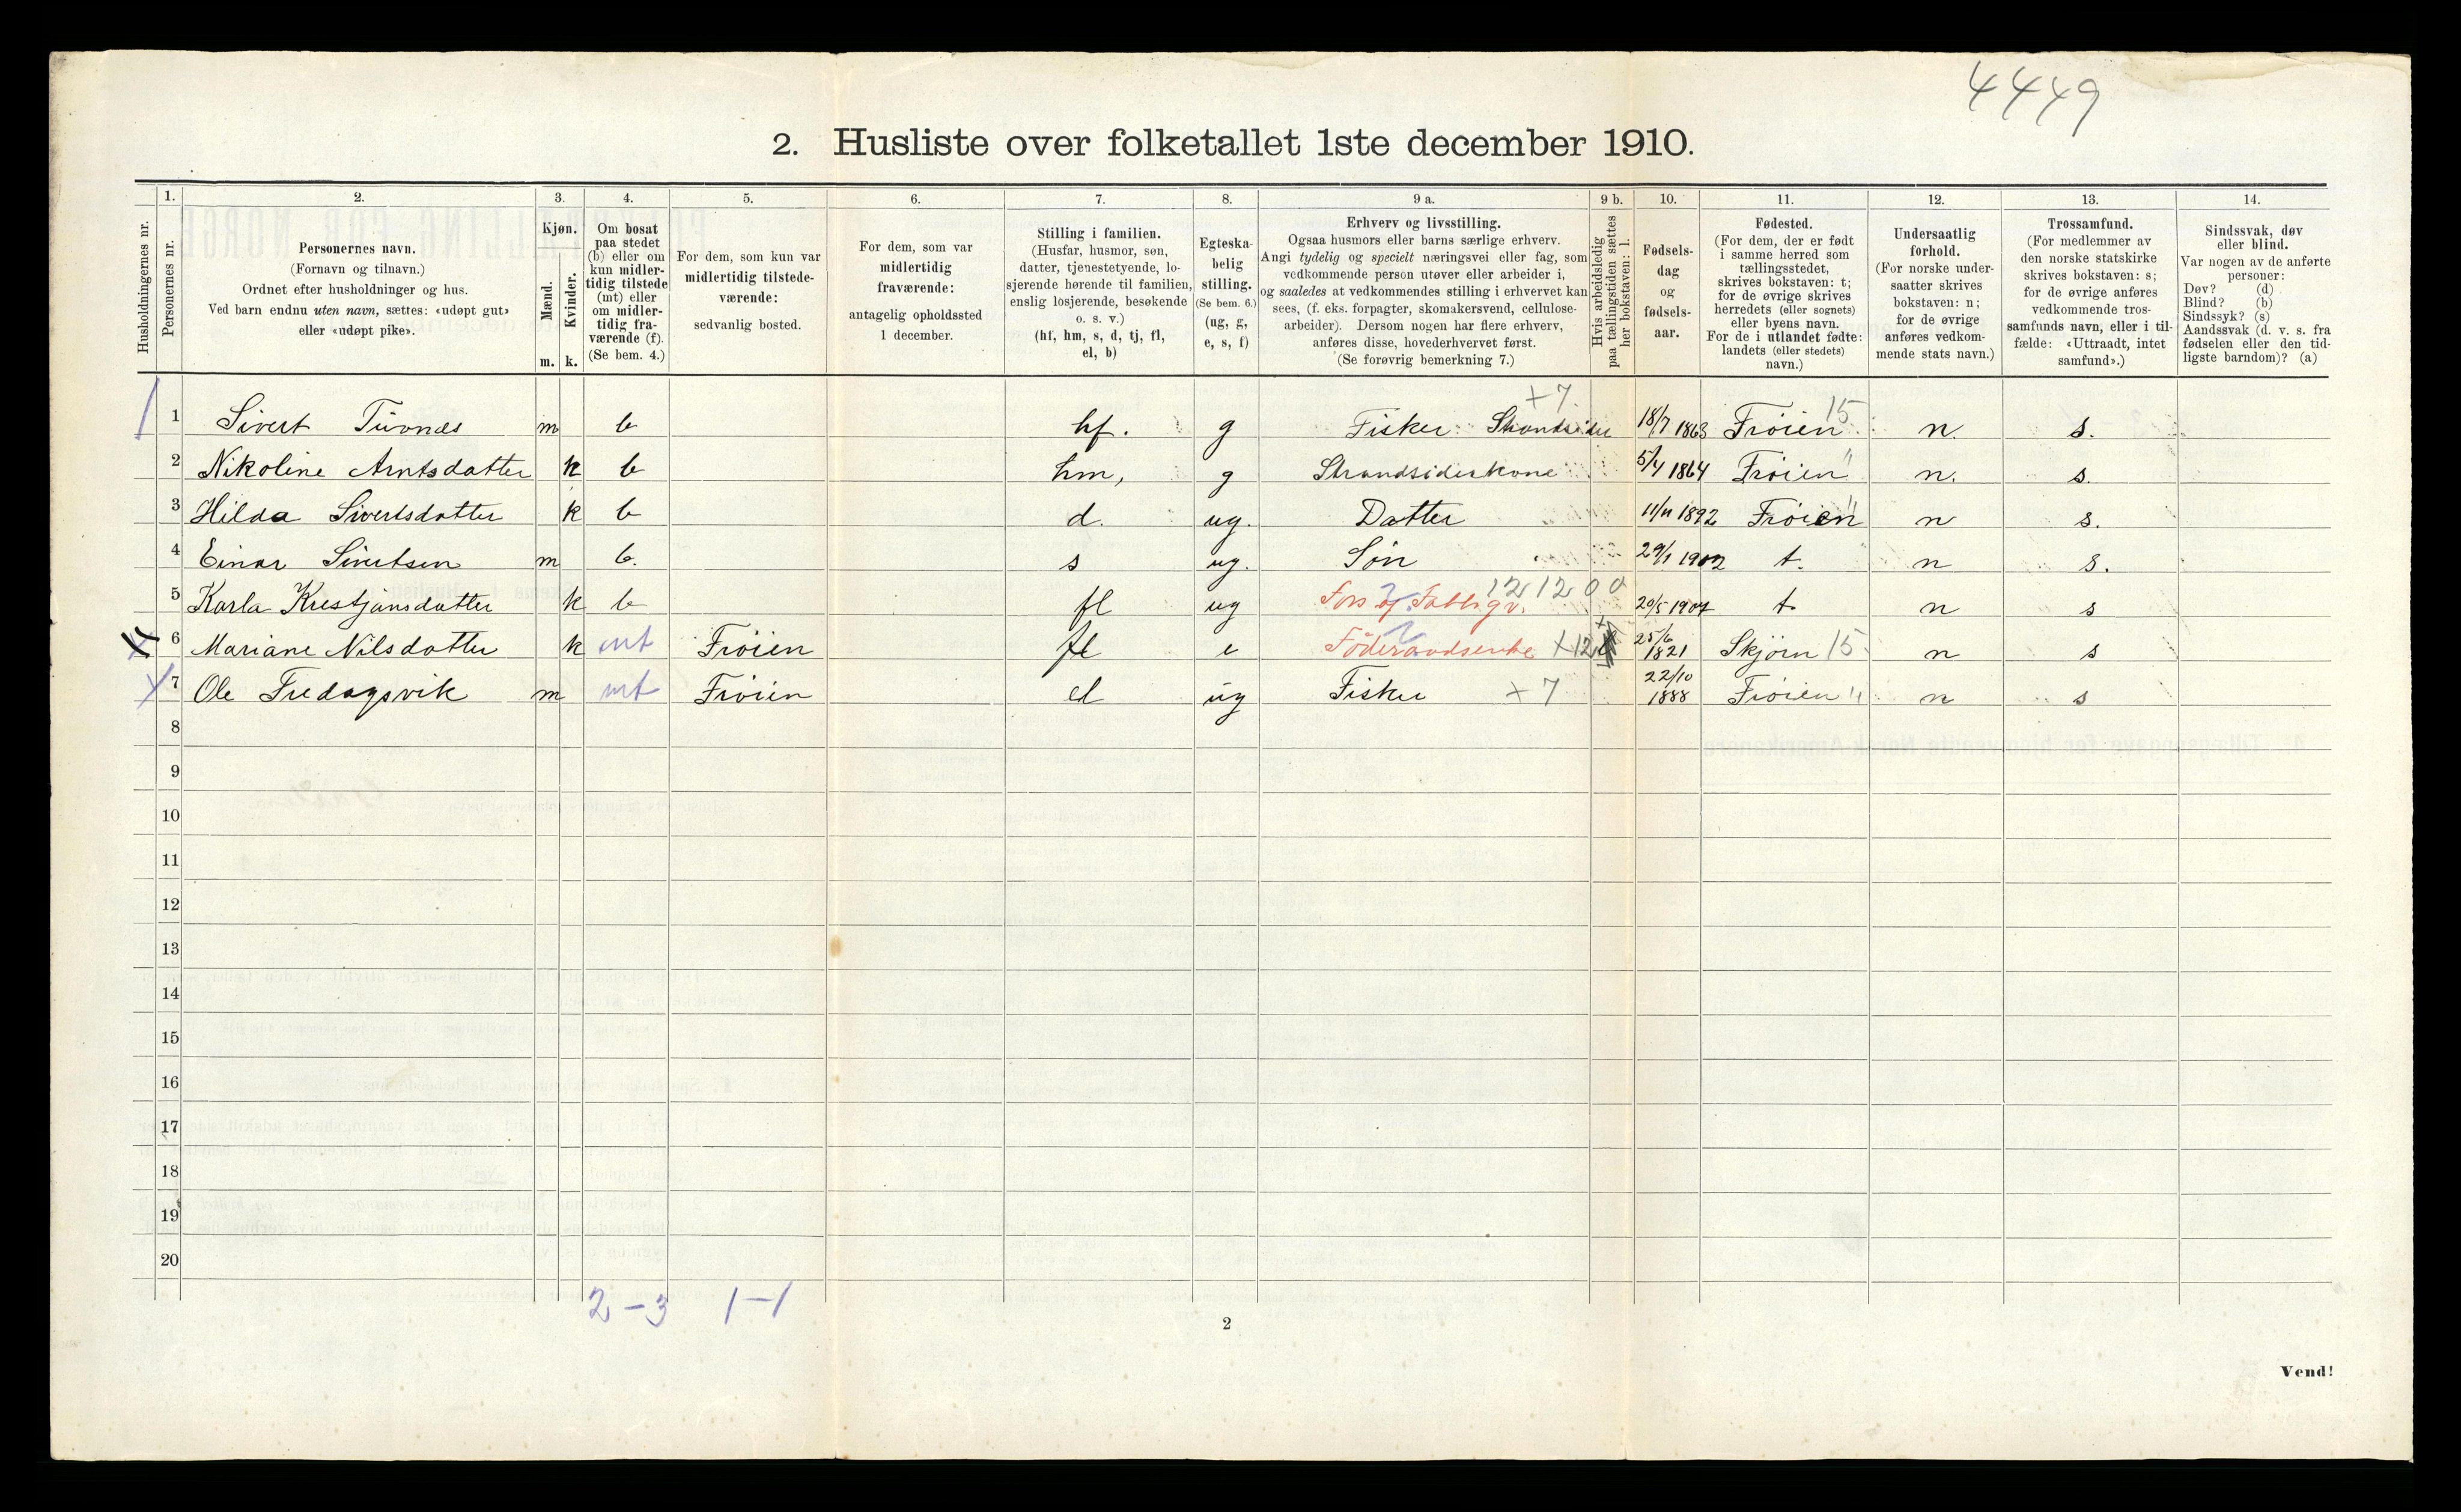 4449
2. Husliste over folketallet 1ste december 1910.
Husholdningernes nr.
1.
Personernes nr.
2.
Personernes navn.
(Fornavn og tilnavn.)
Ordnet efter husholdninger og hus.
Ved barn endnu uten navn, sættes: «udøpt gut»
eller «udøpt pike».
3.
Kjøn.
Mænd.
Kvinder.
m. k.
4.
Om bosat
paa stedet
(b) eller om
kun midler-
tidig tilstede
(mt) eller
om midler-
tidig fra-
værende (f).
(Se bem. 4.)
5.
For dem, som kun var
midlertidig tilstede-
værende:
sedvanlig bosted.
6.
For dem, som var
midlertidig
fraværende:
antagelig opholdssted
1 december.
7.
Stilling i familien.
(Husfar, husmor, søn,
datter, tjenestetyende, lo-
sjerende hørende til familien,
enslig losjerende, besøkende
o. s. v.)
(hf, hm, s, d, tj, fl,
el, b)
8.
Egteska-
belig
stilling.
(Se bem. 6.)
(ug, g,
e, s, f)
9 a.
Erhverv og livsstilling.
Ogsaa husmors eller barns særlige erhverv.
Angi tydelig og specielt næringsvei eller fag, som
vedkommende person utøver eller arbeider i,
og saaledes at vedkommendes stilling i erhvervet kan
sees, (f. eks. forpagter, skomakersvend, cellulose-
arbeider). Dersom nogen har flere erhverv,
anføres disse, hovederhvervet først.
(Se forøvrig bemerkning 7.)
9 b.
Hvis arbeidsledig
paa tællingstiden sættes
her bokstaven: l.
10.
Fødsels-
dag
og
fødsels-
aar.
11.
Fødested.
(For dem, der er født
i samme herred som
tællingsstedet,
skrives bokstaven: t;
for de øvrige skrives
herredets (eller sognets)
eller byens navn.
For de i utlandet fødte:
landets (eller stedets)
navn.)
12.
Undersaatlig
forhold.
(For norske under-
saatter skrives
bokstaven: n;
for de øvrige
anføres vedkom-
mende stats navn.)
13.
Trossamfund.
(For medlemmer av
den norske statskirke
skrives bokstaven: s;
for de øvrige anføres
vedkommende tros-
samfunds navn, eller i til-
fælde: «Uttraadt, intet
samfund».)
14.
Sindssvak, døv
eller blind.
Var nogen av de anførte
personer:
Døv? (d)
Blind? (b)
Sindssyk? (s)
Aandssvak (d. v. s. fra
fødselen eller den tid-
ligste barndom)? (a)
+7 15
1 Sivert m b hf. g Fisker 18/7 1863 Frøien n. s.
2 Nikoline Arntsdatter k b hm, g Strandsiderkone 5/4 1864 Frøien " n. s.
3 Hilda Sivertsdatter k b d. ug. Datter 11/11 1892 Frøien " n s.
4 Einar Sivertsen m b. s ug. Søn 29/1 1902 t. n s.
12 12 00
5 Karla Krestjansdatter k b fl ug 20/5 1907 t n s
6 Mariane Nilsdatter k mt Frøien fl e Føderaadsenke +12 25/6 1821 Skjørn 15 n s
7 Ole Fredagsvik m mt Frøien el ug Fisker +7 22/10 1888 Frøien " n s
8
9
10
11
12
13
14
15
16
17
18
19
20
2 – 3 1 – 1
2
Vend!